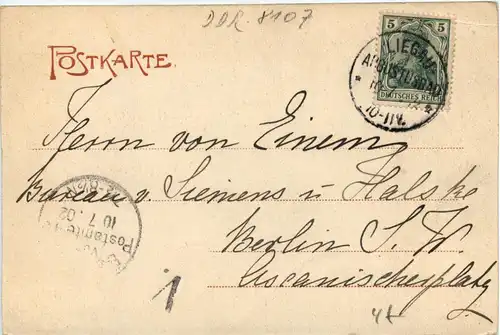 DDR. 8107
POSTKARTE.
5 5
DEUTSCHES REICH
LIEGAU
AUGUSTUSBAD
10-11V.
Herrn von Einem
Bureau v. Siemens u Halske
Berlin S. W.
Ascanischerplatz
Postamte
10 7. 02
1